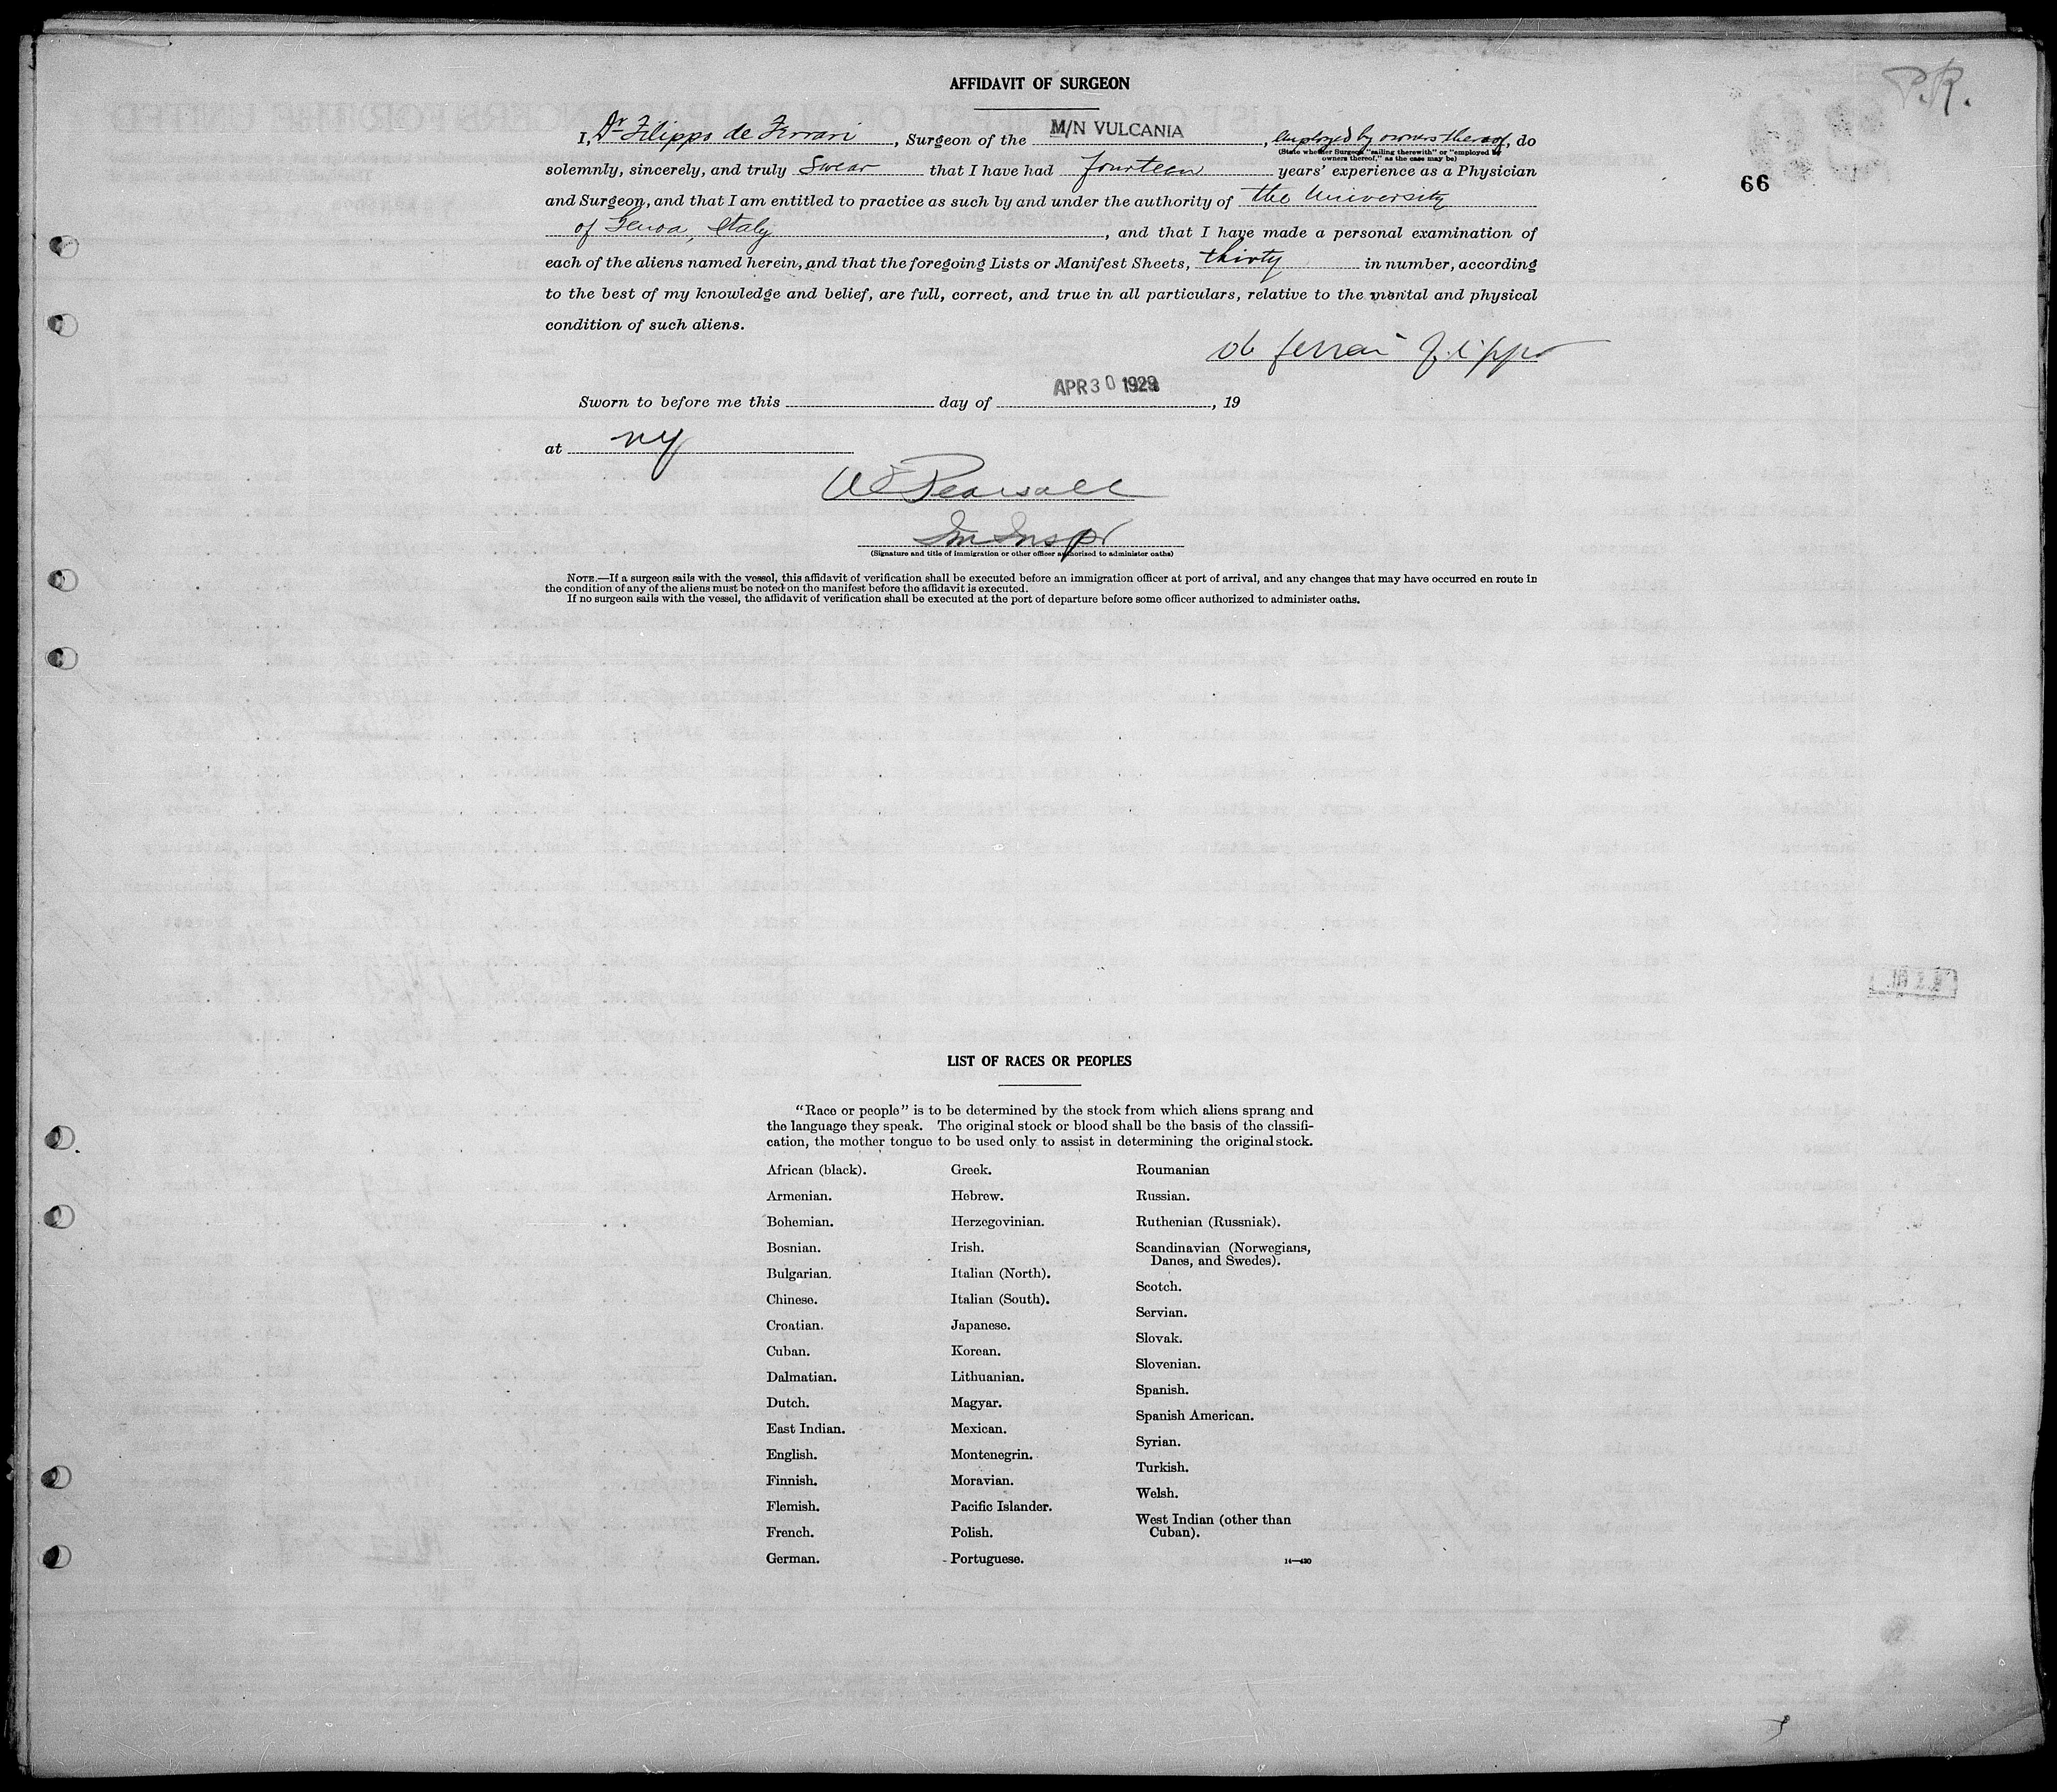 P.R.
AFFIDAVIT OF SURGEON
I, Dr Filippo de Ferrari, Surgeon of the M/N VULCANIA, employed by owners thereof, do
(State whether Surgeon "sailing therewith" or "employed by
owners thereof," as the case may be)
66
solemnly, sincerely, and truly swear that I have had fourteen years' experience as a Physician
and Surgeon, and that I am entitled to practice as such by and under the authority of the University
of Genoa, Italy, and that I have made a personal examination of
each of the aliens named herein, and that the foregoing Lists or Manifest Sheets, thirty in number, according
to the best of my knowledge and belief, are full, correct, and true in all particulars, relative to the mental and physical
condition of such aliens.
de ferrari filippo
Sworn to before me this day of APR 30 1929, 19
at NY
Pearsall
Im Inspr
(Signature and title of immigration or other officer authorized to administer oaths)
NOTE.—If a surgeon sails with the vessel, this affidavit of verification shall be executed before an immigration officer at port of arrival, and any changes that may have occurred en route in
the condition of any of the aliens must be noted on the manifest before the affidavit is executed.
If no surgeon sails with the vessel, the affidavit of verification shall be executed at the port of departure before some officer authorized to administer oaths.
LIST OF RACES OR PEOPLES
"Race or people" is to be determined by the stock from which aliens sprang and
the language they speak. The original stock or blood shall be the basis of the classifi-
cation, the mother tongue to be used only to assist in determining the original stock.
African (black).
Armenian.
Bohemian.
Bosnian.
Bulgarian.
Chinese.
Croatian.
Cuban.
Dalmatian.
Dutch.
East Indian.
English.
Finnish.
Flemish.
French.
German.
Greek.
Hebrew.
Herzegovinian.
Irish.
Italian (North).
Italian (South).
Japanese.
Korean.
Lithuanian.
Magyar.
Mexican.
Montenegrin.
Moravian.
Pacific Islander.
Polish.
Portuguese.
Roumanian
Russian.
Ruthenian (Russniak).
Scandinavian (Norwegians,
Danes, and Swedes).
Scotch.
Servian.
Slovak.
Slovenian.
Spanish.
Spanish American.
Syrian.
Turkish.
Welsh.
West Indian (other than
Cuban).
14—430